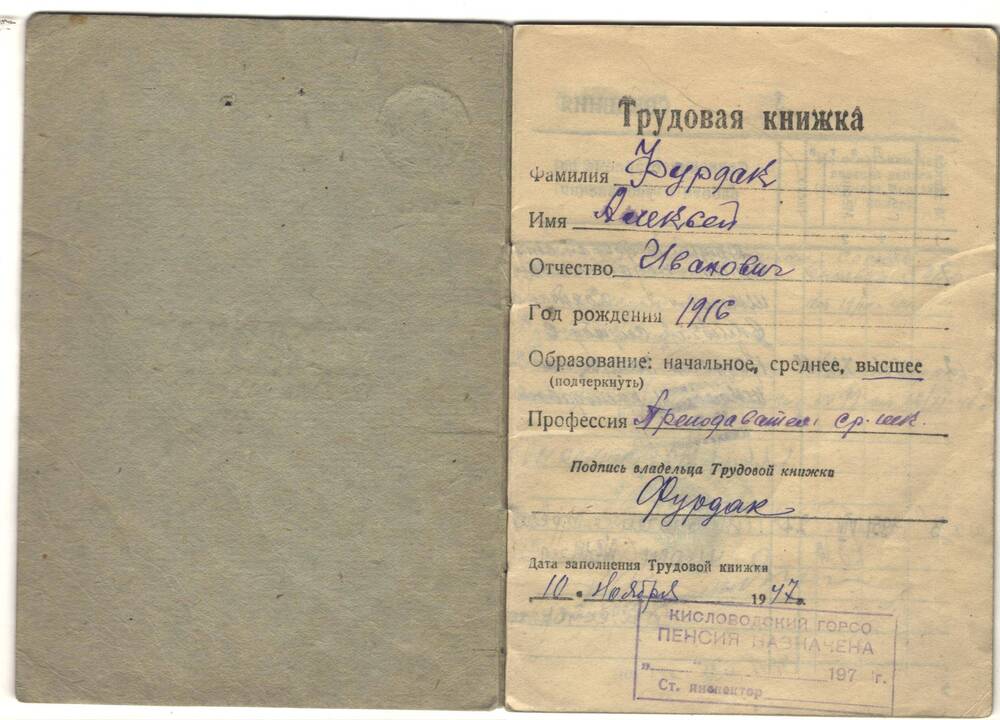 Трудовая книжка
Фамилия Фурдак
Имя Алексей
Отчество Иванович
Год рождения 1916
Образование: начальное, среднее, высшее
(подчеркнуть)
Профессия Преподаватель ср. шк.
Подпись владельца Трудовой книжки
Фурдак
Дата заполнения Трудовой книжки
10 ноября 1947г.
КИСЛОВОДСКИЙ ГОРСО
ПЕНСИЯ НАЗНАЧЕНА
„ " 197 г.
Ст. инспектор